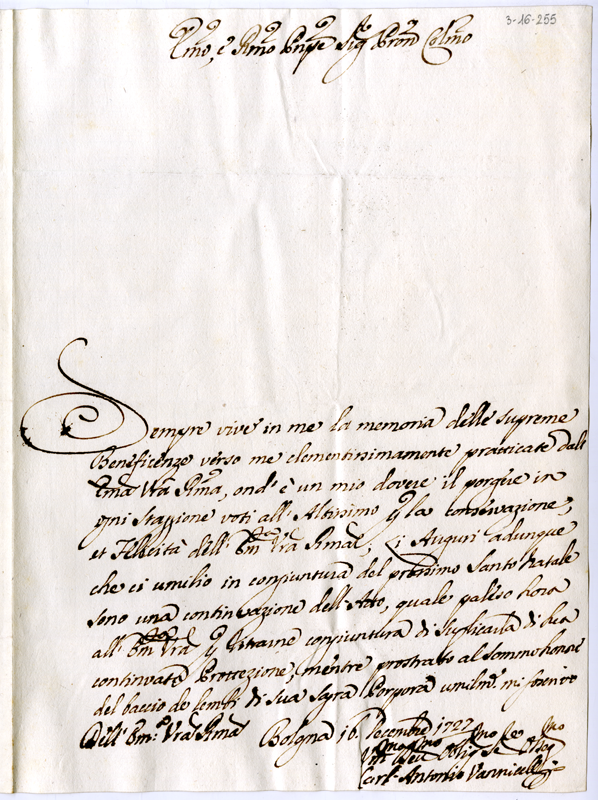 3-16-255
Emo, e Rmo Pnpe Sig.r Pron Colmo
Sempre vive in me la memoria delle supreme
Beneficenze verso me clementissimamente practicate dall
Emza Vra Rma, ond' è un mio dovere il porgere in
ogni staggione voti all' Altissimo p la conservazione,
et Felicità dell' Em Vra Rma, i Auguri adunque
che ci umilio in conjuntura del prossimo Santo Natale
sono una continuazione dell' Atto, quale paleso hora
all' Em Vra p conjuntura di di sua
continuata Prottezione, mentre prostrato al sommo honore
del baccio de lembi di sua Sagra Porpora umilme mi
Dell' Em Vra Rma Bologna 16 Decembre 1727
Um Oblig
Carl' Antonio Vannicelli